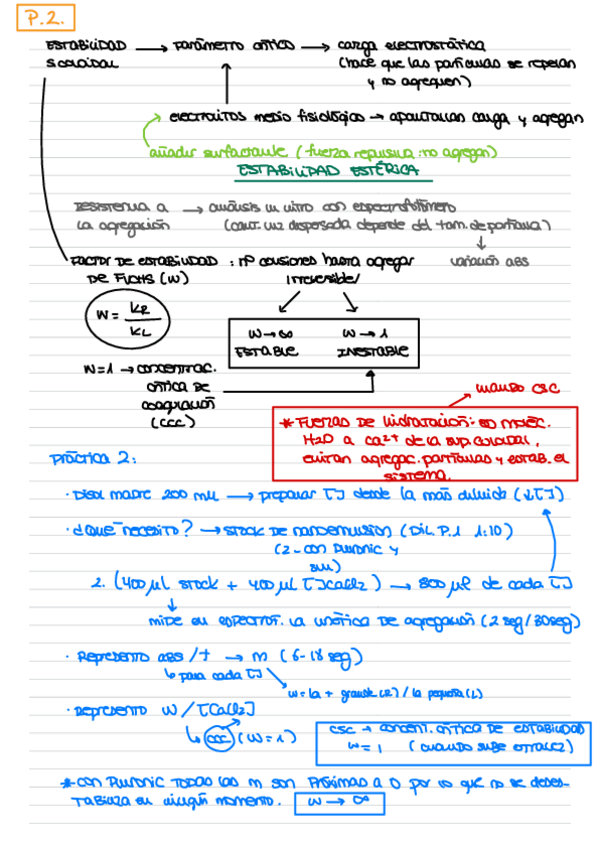 P.2.
ESTABILIDAD → PARÁMETRO CRÍTICO → carga electrostática
S COLOIDAL (hace que las partículas se repelan
y no agreguen)
electrolitos medio fisiológico → apantallan carga y agregan
añadir surfactante (fuerza repulsiva: no agregan)
ESTABILIDAD ESTÉRICA
RESISTENCIA A → análisis in vitro con espectrofotómetro
LA agregación (cant. luz dispersada depende del tam. de partícula)
FACTOR DE ESTABILIDAD : nº colisiones hasta agregar variación ABS
DE FUCHS (W) irreversible/
W = kR / kL
W → ∞ W → 1
ESTABLE INESTABLE
W = 1 → concentrac.
crítica de
coagulación
(CCC)
cuando CSC
* FUERZAS DE hidratación: so moléc.
H2O a Ca2+ de la sup. coloidal,
evitan agregac. partículas y estab. el
sistema.
Práctica 2:
· Disol madre 200 mM → preparar [ ] desde la más diluida (↓[ ])
· ¿Qué necesito? → STOCK DE nanoemulsión (Dil. P.1 1:10)
(2 - con Pluronic y
sin)
2. (400 µl stock + 400 µl [ ] CaCl2) → 800 µl de cada [ ]
mide en espectrof. la cinética de agregación (2 seg/30seg)
· Represento abs/t → m (6-18 seg)
para cada [ ]
W = la + grande (R) / la pequeña (L)
· Represento W / [CaCl2]
CCC (W = 1)
CSC → concent. crítica de ESTABILIDAD
W = 1 (cuando sube otra vez)
* con Pluronic TODAS las m son próximas a 0 por lo que no se deses-
tabiliza en ningún momento. W → ∞